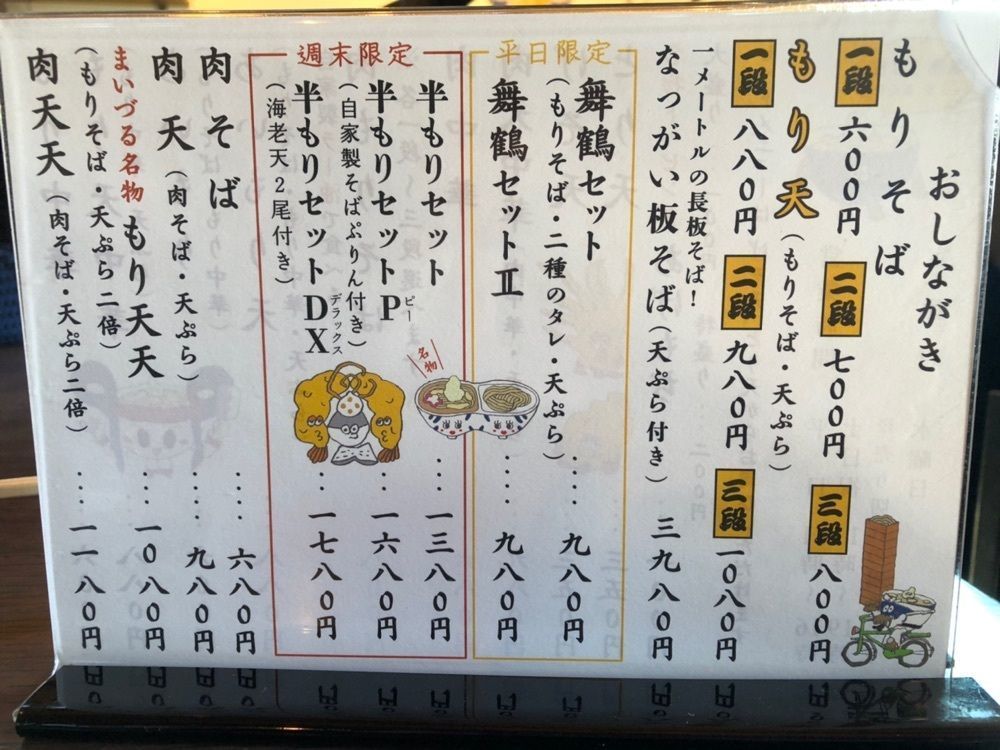 おしながき
もりそば
一段 六〇〇円 二段 七〇〇円 三段 八〇〇円
もり天(もりそば・天ぷら)
一段 八八〇円 二段 九八〇円 三段 一〇八〇円
一メートルの長板そば!
なっがい板そば(天ぷら付き) 三九八〇円
平日限定
舞鶴セット
(もりそば・二種のタレ・天ぷら)…… 九八〇円
舞鶴セットⅡ …… 九八〇円
週末限定
名物
半もりセット …… 一三八〇円
半もりセットP ピー
(自家製そばぷりん付き)…… 一六八〇円
半もりセットDX デラックス
(海老天2尾付き)…… 一七八〇円
肉そば …… 六八〇円
肉天(肉そば・天ぷら)…… 九八〇円
まいづる名物 もり天天
(もりそば・天ぷら二倍)…… 一〇八〇円
肉天天(肉そば・天ぷら二倍)…… 一一八〇円